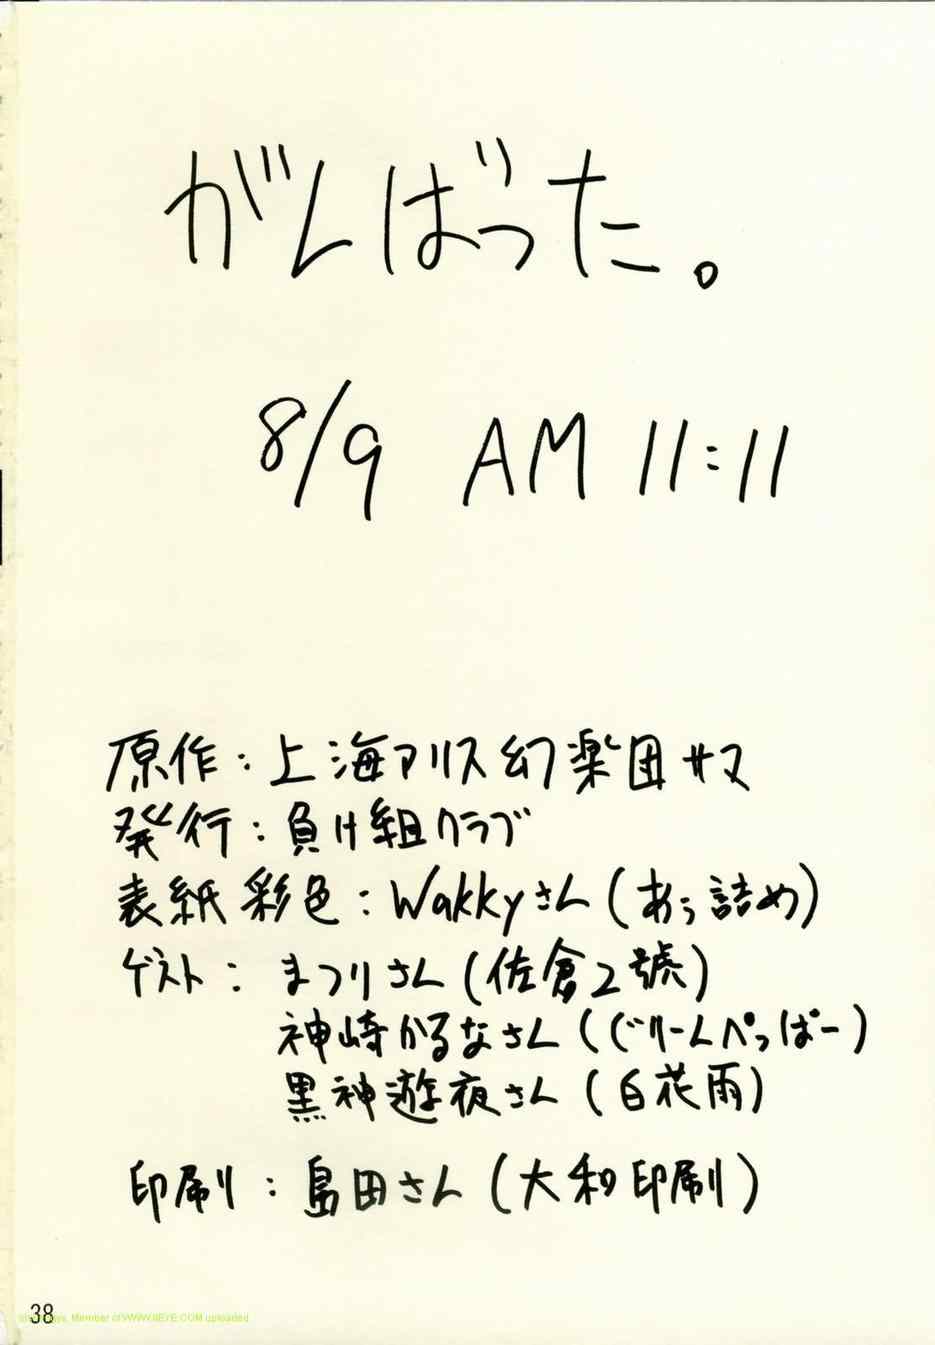 がんばった。
8/9 AM 11:11
原作:上海アリス幻楽団サマ
発行:負け組クラブ
表紙彩色:Wakkyさん(あぅ詰め)
ゲスト: まつりさん(佐倉2號)
神崎かるなさん(ぐりーんぺっぱー)
黒神遊夜さん(白花雨)
印刷:島田さん(大和印刷)
38
Member of WWW.IIEYE.COM uploaded